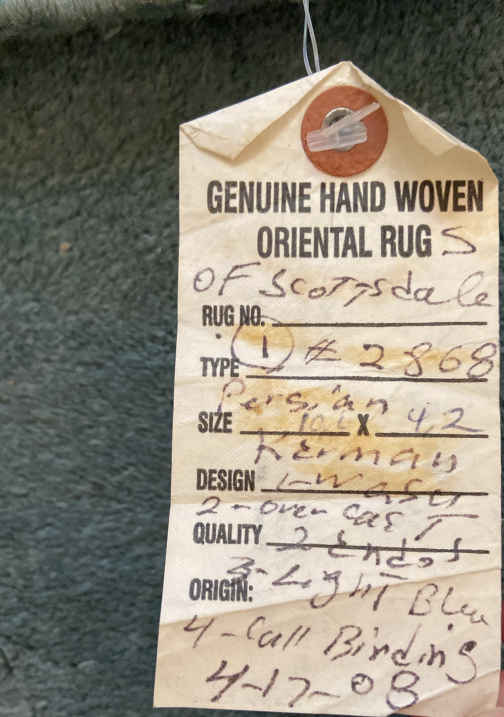 GENUINE HAND WOVEN
ORIENTAL RUG S
OF Scottsdale
RUG NO.
1 # 2868
TYPE
Persian
SIZE 10 X 4,2
Kerman
DESIGN 1-Wash
2-over cast
QUALITY 2 Ends
3-Light Blue
ORIGIN:
4-Call Binding
4-17-08